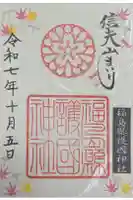 信夫山まいり
福島縣護國神社
令和七年十月五日
福島縣護國神社